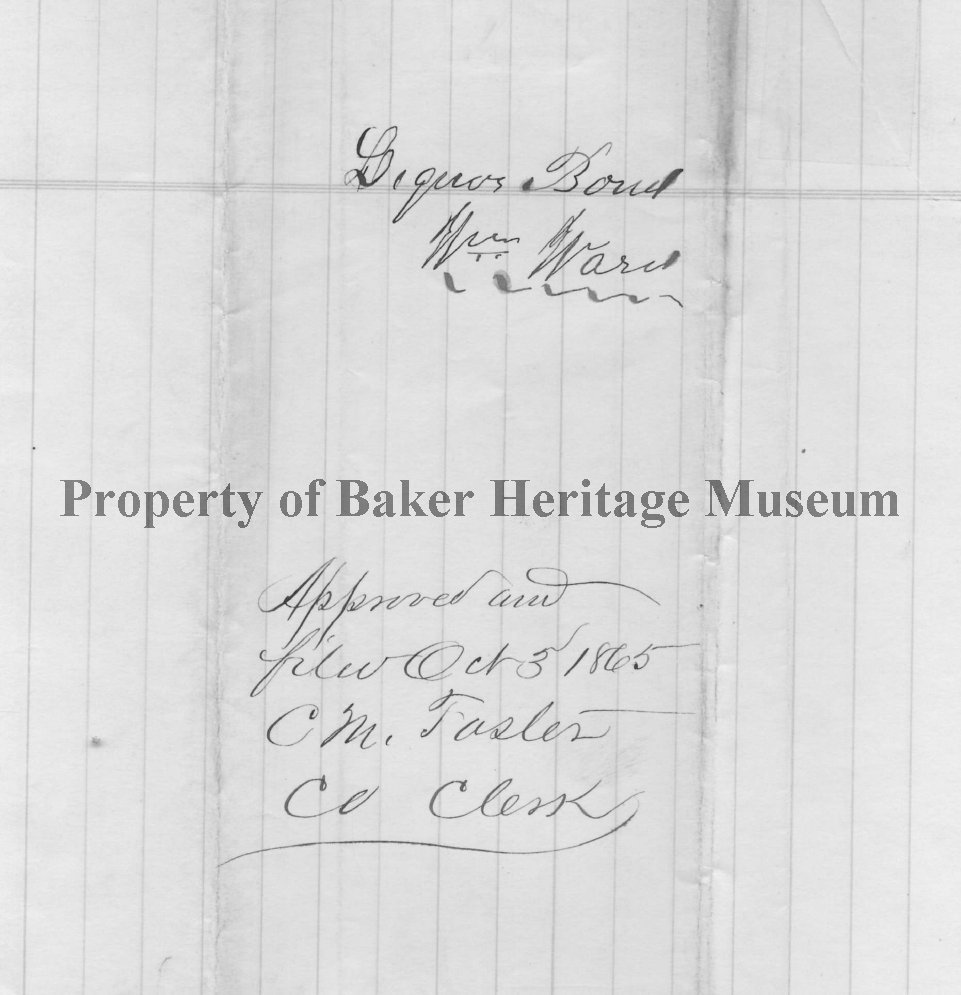 Liquor Bond
Wm Ward
Property of Baker Heritage Museum
Approved and
filed Oct 5 1865
C M. Foster
Co Clerk